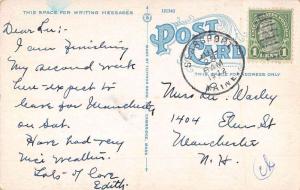 THIS SPACE FOR WRITING MESSAGES
POST CARD
THIS SPACE FOR ADDRESS ONLY
Dear Lu:
I am finishing
my second week
here expect to
leave for Manchester
on Sat.
Have had very
nice weather.
Lots of Love
Edith.
AM
MAINE
1 CENT 1
Miss Lu
1404 Elm St
Manchester
N. H.